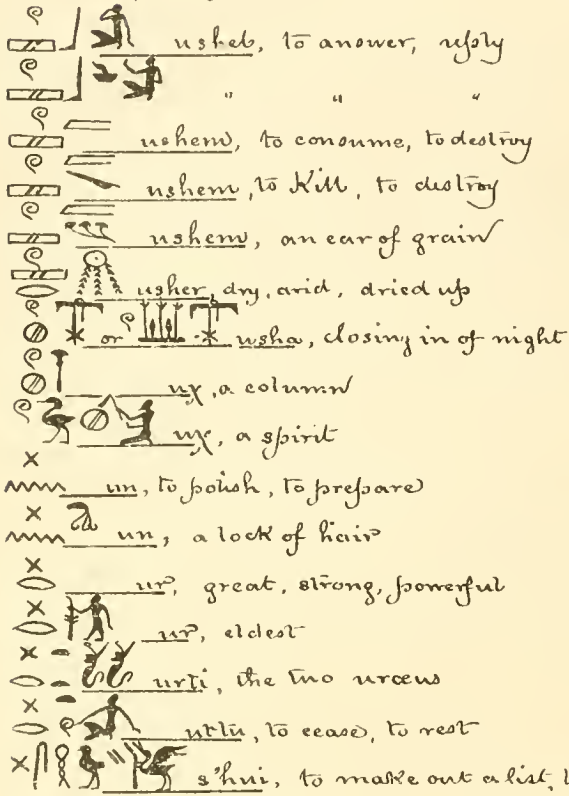 usheb, to answer, reply
" " "
ushem, to consume, to destroy
ushem, to Kill, to destroy
ushem, an ear of grain
usher, dry, arid, dried up
or usha, closing in of night
uχ, a column
uχ, a spirit
un, to polish, to prepare
un, a lock of hair
ur, great, strong, powerful
ur, eldest
urti, the two uræus
urtu, to cease, to rest
s'hui, to make out a list,